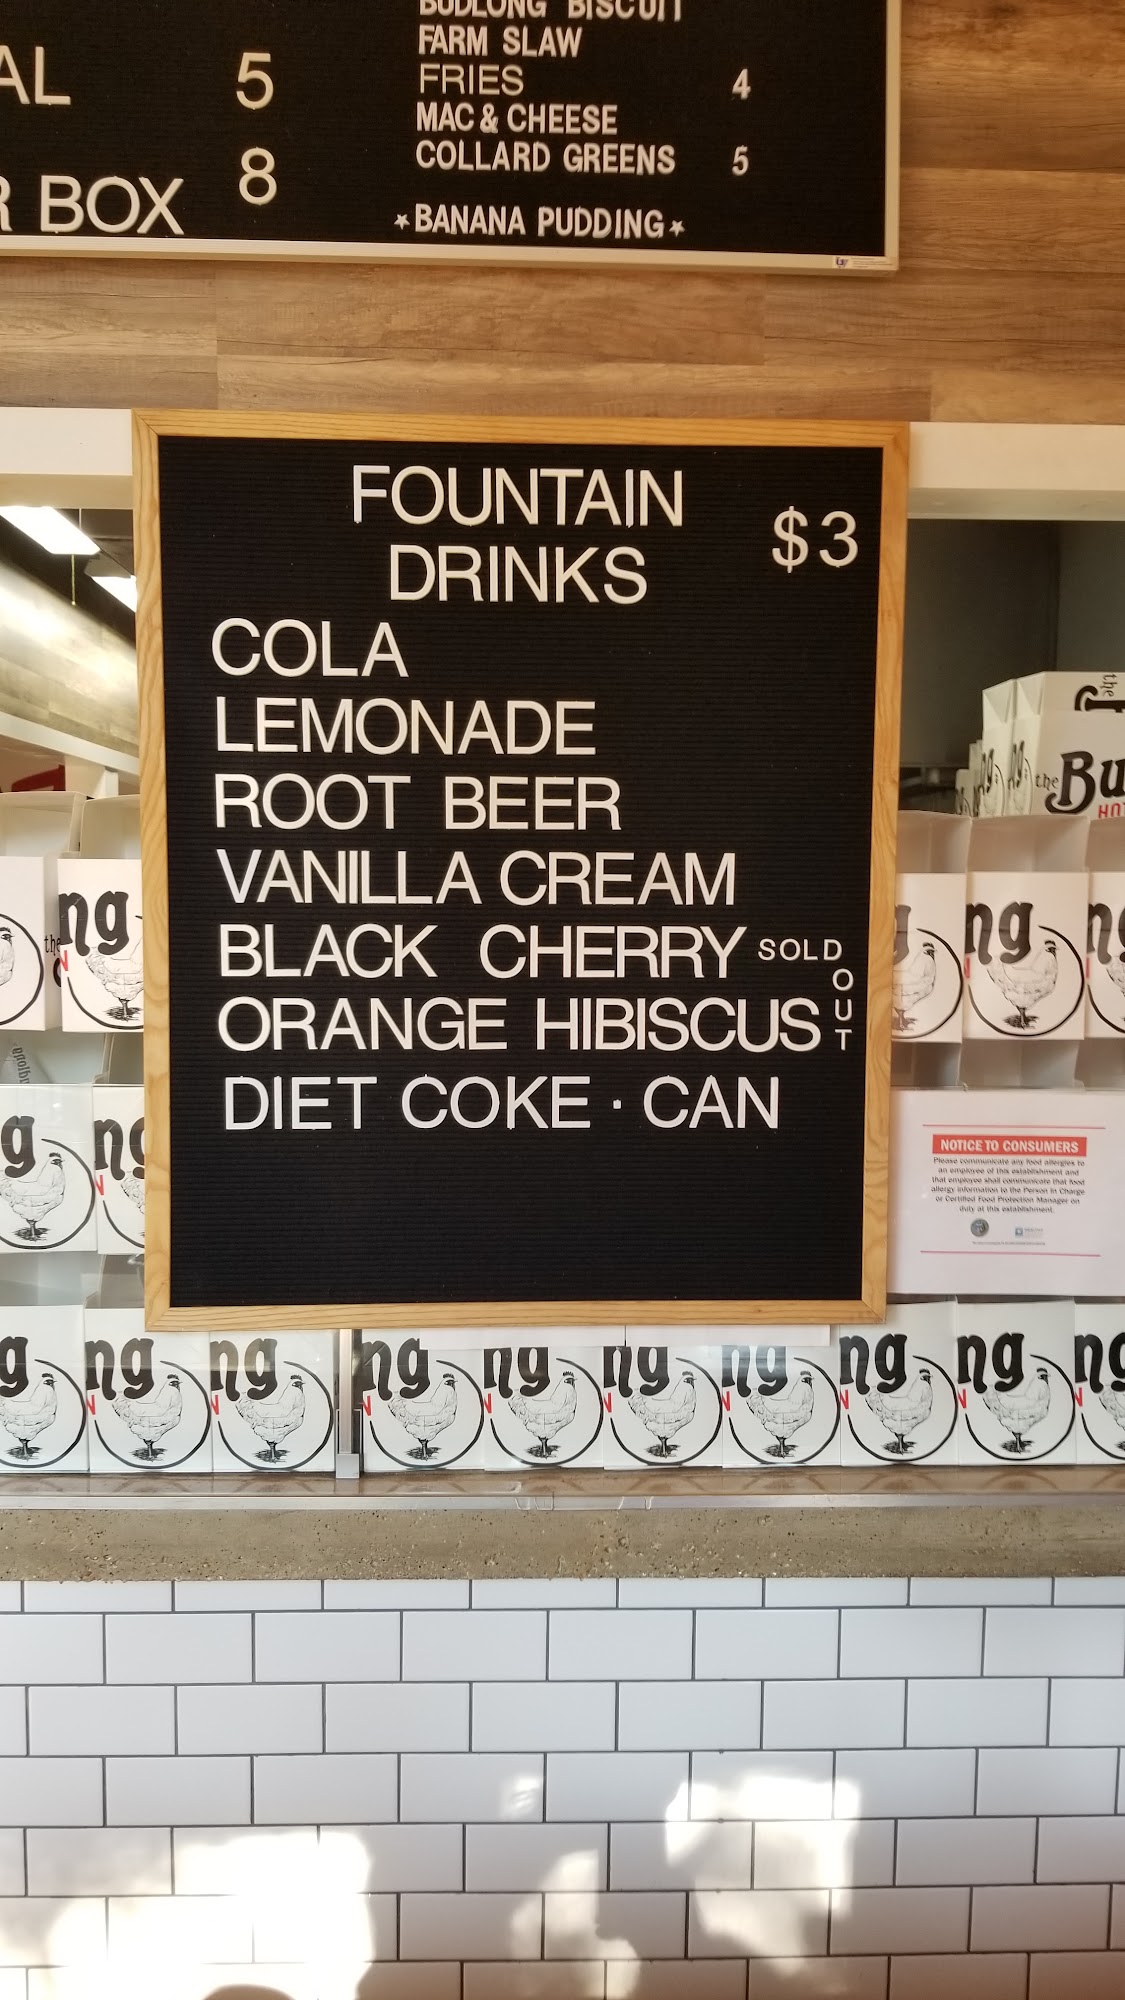 BUDLONG BISCUIT
FARM SLAW
FRIES 4
MAC & CHEESE
COLLARD GREENS 5
*BANANA PUDDING*
AL 5
R BOX 8
FOUNTAIN
DRINKS
$3
COLA
LEMONADE
ROOT BEER
VANILLA CREAM
BLACK CHERRY SOLD OUT
ORANGE HIBISCUS
DIET COKE · CAN
the
the Bu
HOT
ng ng
ng ng ng
the
ng
ng ng
NOTICE TO CONSUMERS
Please communicate any food allergies to
an employee of this establishment and
that employee shall communicate that food
allergy information to the Person in Charge
or Certified Food Protection Manager on
duty at this establishment.
ng ng ng ng ng ng ng ng ng ng